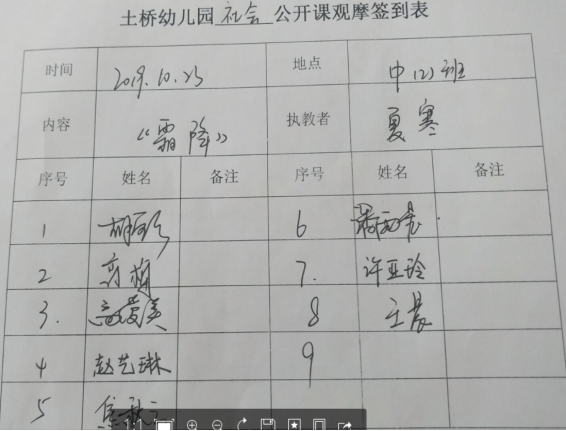 土桥幼儿园 社会 公开课观摩签到表
时间 2019.10.23 地点 中(2)班
内容 《霜降》 执教者 夏寒
序号 姓名 备注 序号 姓名 备注
1 6
2 高梅 7. 许亚玲
3. 8 王晨
4 赵艺琳 9
5
1:1